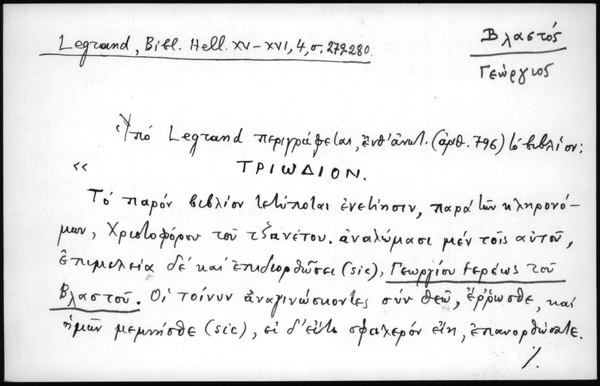 Legrand, Bibl. Hell. XV–XVI, 4, σ. 279-280.
Βλαστός
Γεώργιος
Ὑπό Legrand περιγράφεται, ἔνθ' ἀνωτ. (ἀριθ. 796) τό βιβλίον:
«
ΤΡΙΩΔΙΟΝ.
Τό παρόν βιβλίον τετύπωται ἐνετίησιν, παρά τῶν κληρονό-
μων, Χριστοφόρου τοῦ τζανέτου. ἀναλώμασι μέν τοῖς αὐτοῦ,
ἐπιμελεία δέ καί ἐπιδιορθῶσει (sic), Γεωργίου ιερέως τοῦ
Βλαστοῦ. Οἱ τοίνυν ἀναγινώσκοντες σύν θεῶ, ἔρρωσθε, καί
ἡμῶν μεμνῆσθε (sic), εἰ δ' ἔστι σφαλερόν εἴη, ἐπανορθώσατε.
./.